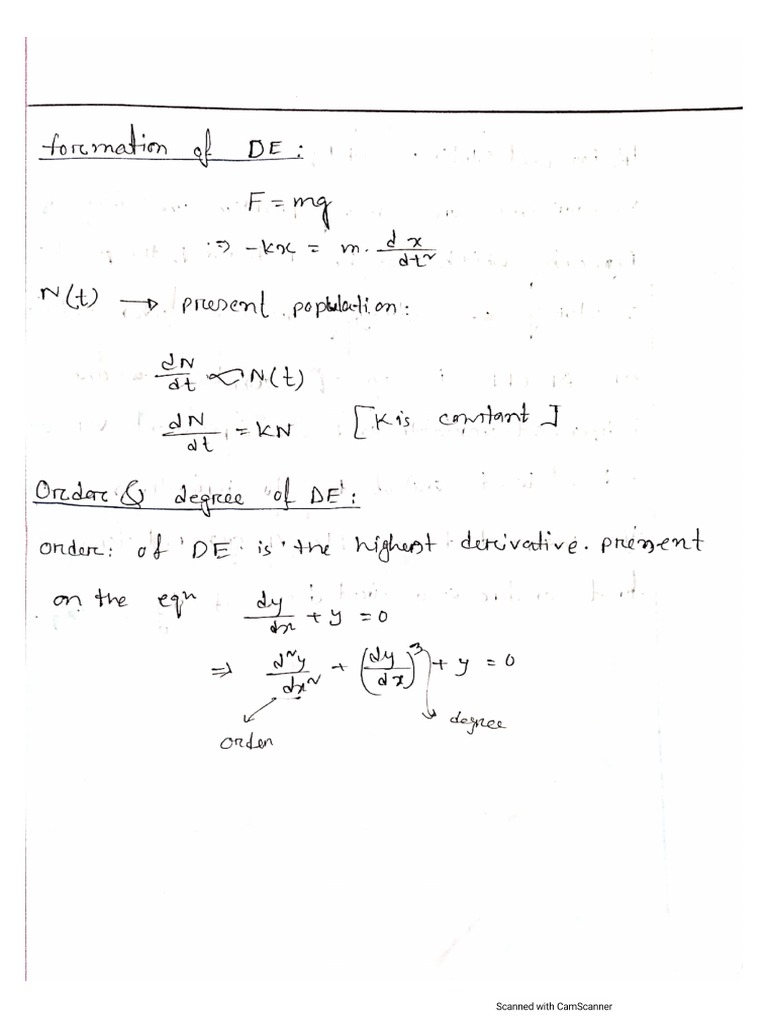 formation of DE :
F = mg
⇒ -kx = m. dx/dt²
N(t) → present population :
dN/dt ∝ N(t)
dN/dt = KN [K is constant]
Order & degree of DE :
order: of DE is the highest derivative present
on the eqn dy/dx + y = 0
⇒ d²y/dx² + (dy/dx)³ + y = 0
order
degree
Scanned with CamScanner